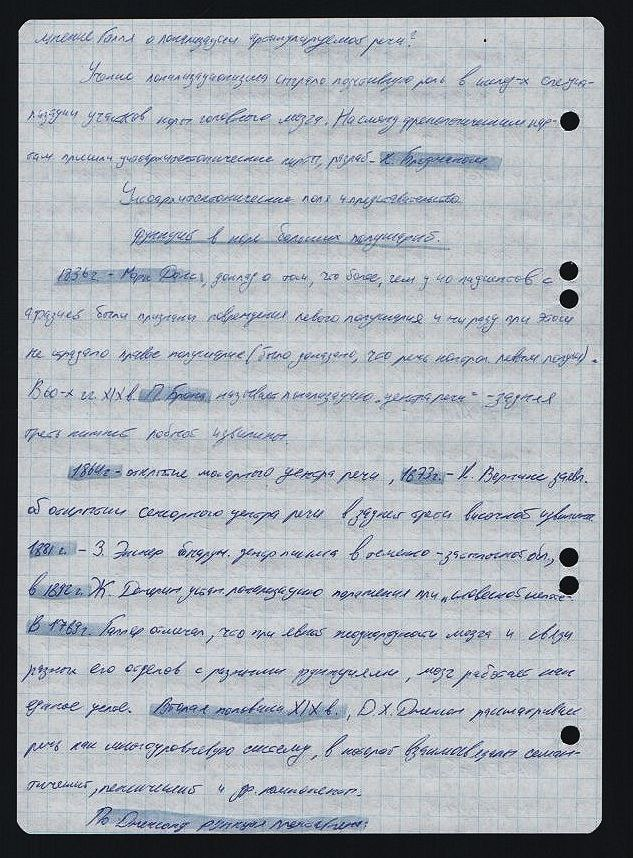 мнение Галля о локализации артикулируемой речи?
Учение локализационизма сыграло позитивную роль в исслед-х специа-
лизации участков коры головного мозга. На смену френологическим кар-
там пришли цитоархитектонические карты, разраб- К. Бродманом
Цитоархитектонические поля и представительство
функций в коре больших полушарий.
1836 г - Марк Дакс, доклад о том, что более, чем у 40 пациентов с
афазией были признаки повреждения левого полушария и ни разу при этом
не страдало правое полушарие (было доказано, что речь левым полуш).
В 60-х гг. XIX в. П. Брока называет локализацию „центра речи" - задняя
треть нижней лобной извилины.
1864 г - открытие моторного центра речи, 1873 г. - К. Вернике заявл.
об открытии сенсорного центра речи в задней трети височной извилины
1881 г. - З. Экснер центр письма в теменно - затылочной обл,
в 1892 г. Ж. Дежерин устан. локализацию поражения при „словесной
В 1769 г. Галлер отмечал, что при явной неоднородности мозга и связи
разных его отделов с разными функциями, мозг работает как
единое целое. Вторая половина XIX в., D. Х. Джексон рассматривал
речь как многоуровневую систему, в которой взаимосвязаны семан-
тический, лексический и др. компоненты.
По Джексону функция